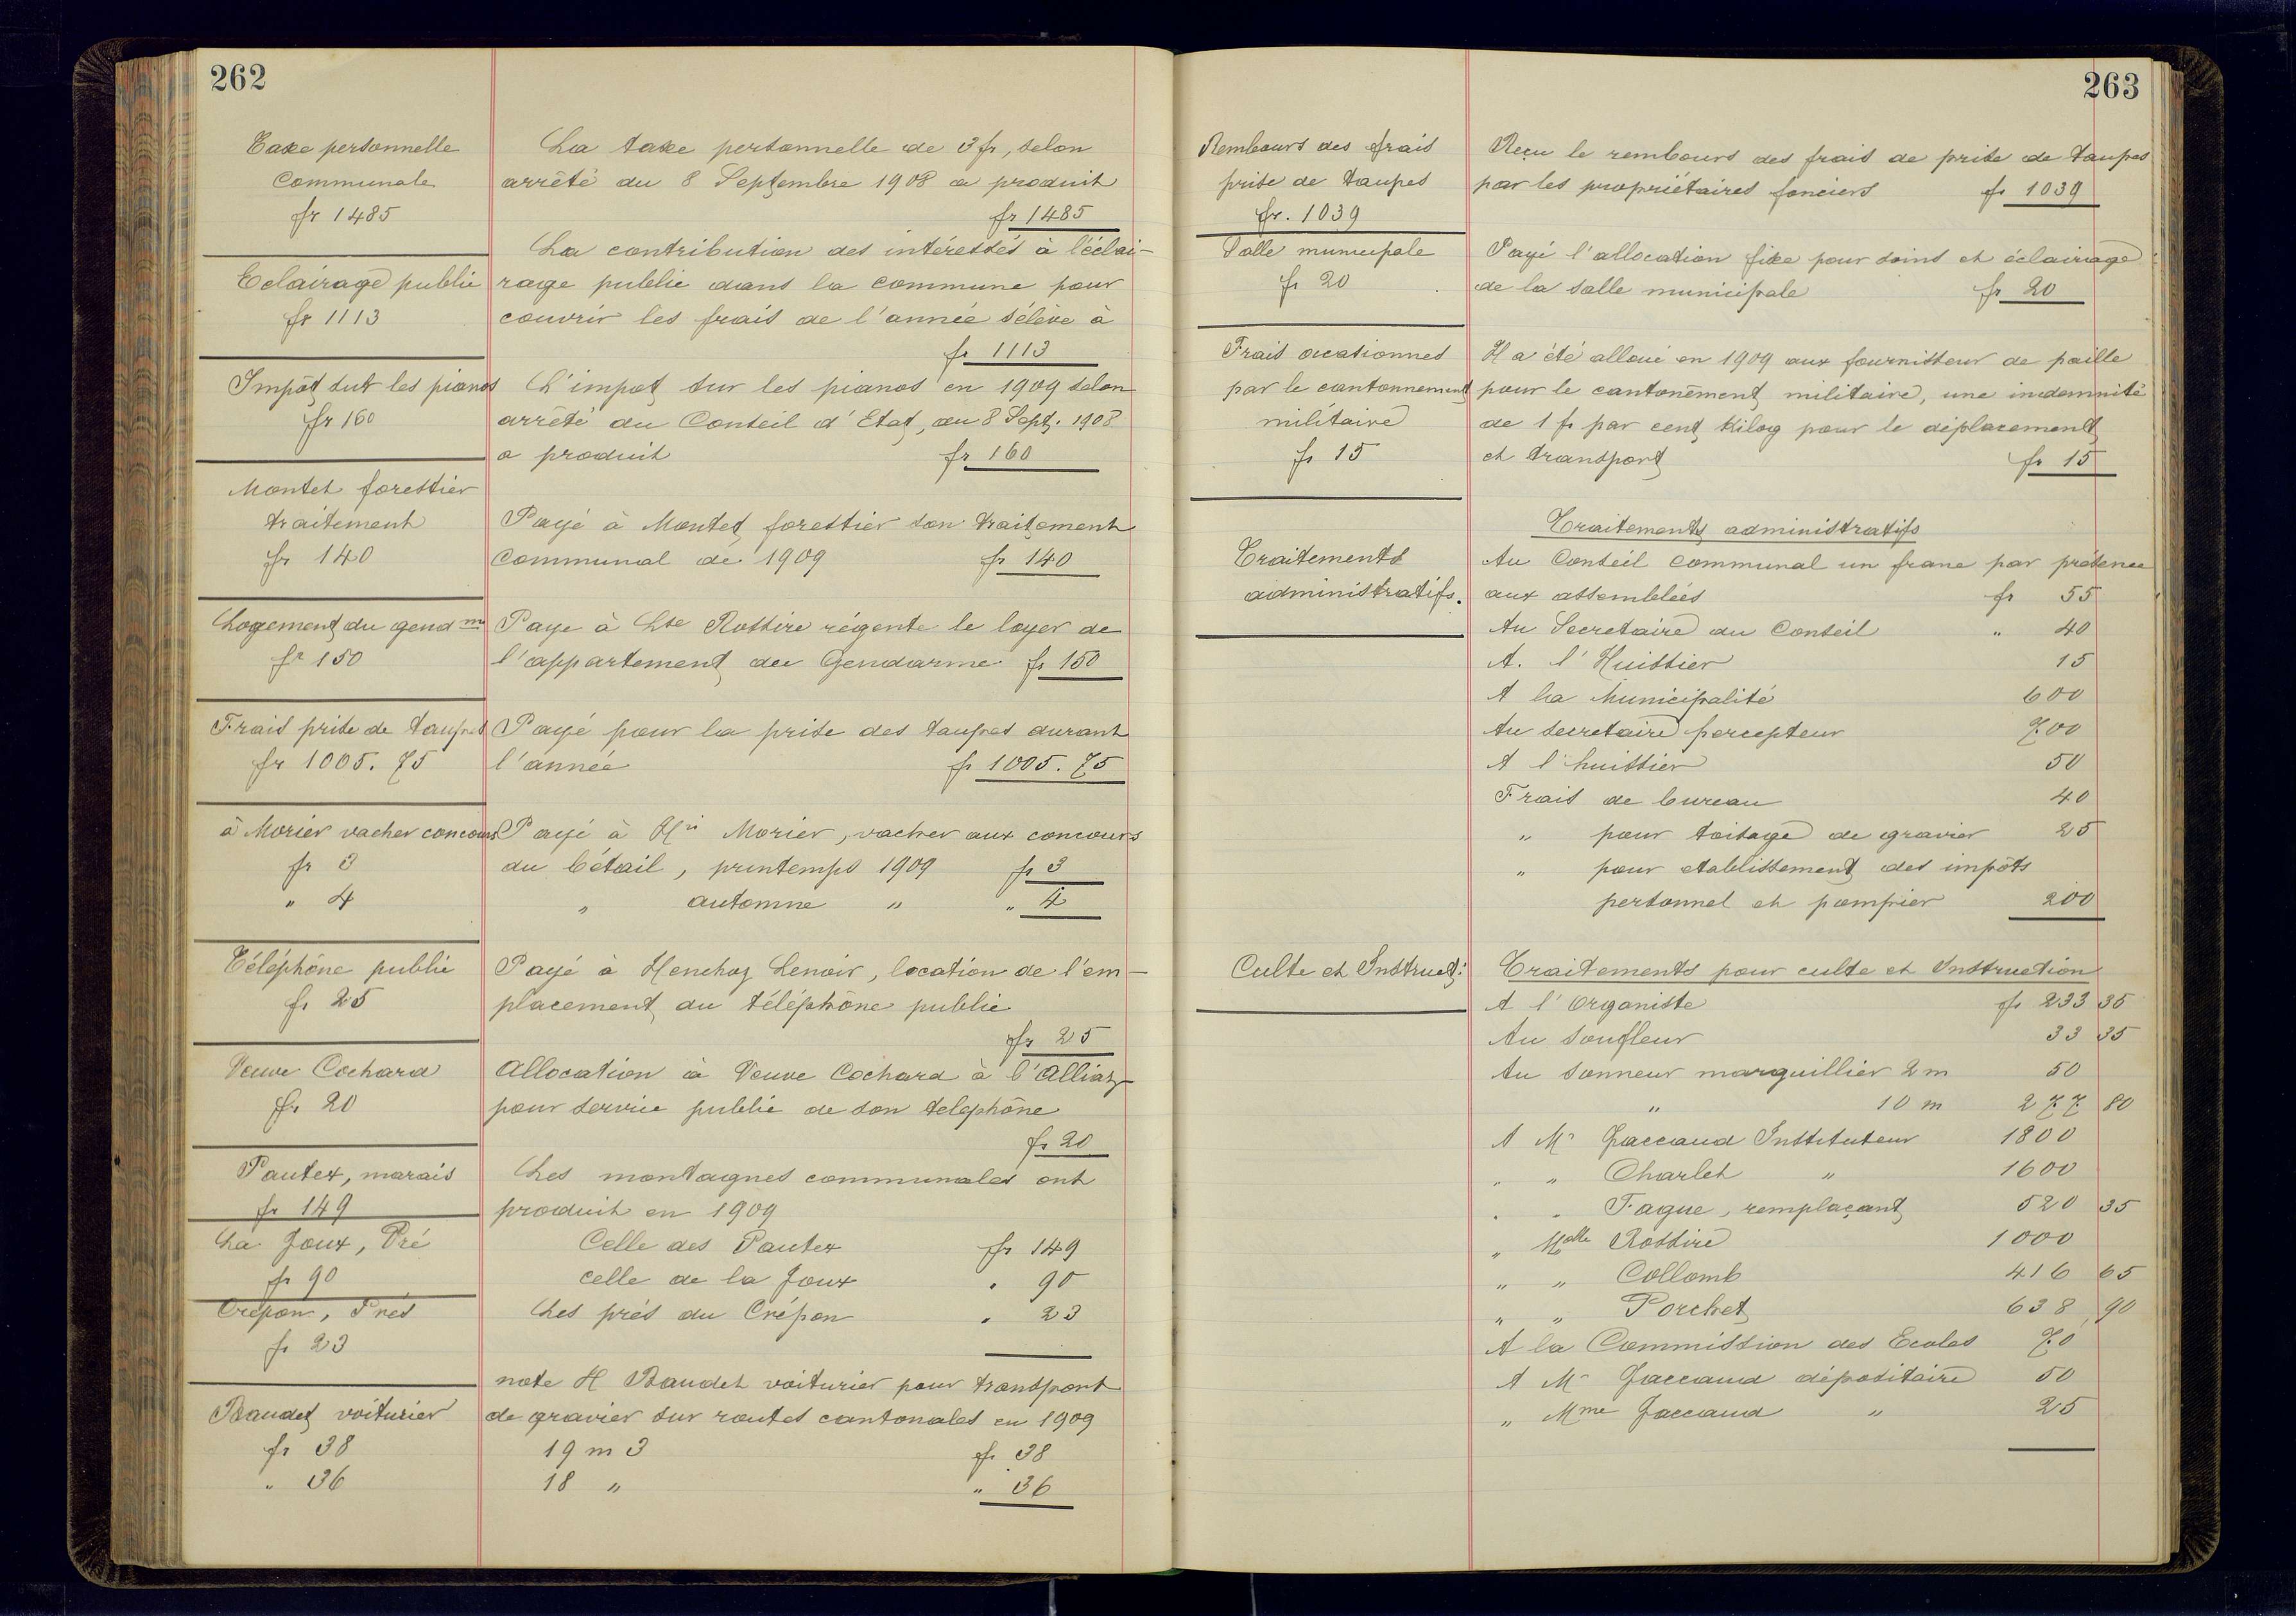 262
Taxe personnelle
Communale
fr 1485
Eclairage public
fr 1113
Impôt sur les pianos
fr 160
Montet forestier
traitement
fr 140
Logement du gendme
fr 150
Frais prise de taupes
fr 1005.75
à Morier vacher concours
fr 3
" 4
Téléphône public
fr 25
Veuve Cochard
fr 20
Pautex, marais
fr 149
La Joux, Pré
fr 90
Crépon, Prés
fr 23
Baudet voiturier
fr 38
" 36
La taxe personnelle de 3 fr, selon
arrêté du 8 Septembre 1908 a produit
fr 1485
La contribution des intéressés à l'éclai-
rage public dans la commune pour
couvrir les frais de l'année s'élève à
fr 1113
L'impot sur les pianos en 1909 selon
arrêté du Conseil d'Etat, du 8 Sept. 1908
a produit fr 160
Payé à Montet forestier son traitement
communal de 1909 fr 140
Paye à Lse Rossire régente le loyer de
l'appartement du Gendarme fr 150
Payé pour la prise des taupes durant
l'année fr 1005.75
Payé à Hri Morier, vacher aux concours
du bétail, printemps 1909 fr 3
" automne " " 4
Payé à Henchoz Lenoir, location de l'em-
placement du téléphône public
fr 25
Allocation à Veuve Cochard à l'Alliaz
pour service public de son telephône
fr 20
Les montagnes communales ont
produit en 1909
Celle des Pautex fr 149
celle de la Joux " 90
Les prés du Crépon " 23
note H Baudet voiturier pour transport
de gravier sur routes cantonales en 1909
19 m 3 fr 38
18 " " 36
263
Rembours des frais
prise de taupes
fr. 1039
Salle municipale
fr 20
Frais occasionnes
par le cantonnement
militaire
fr 15
Traitements
administratifs.
Culte et Instruct:
Reçu le rembours des frais de prise de taupes
par les propriétaires fonciers fr 1039
Payé l'allocation fixe pour soins et éclairage
de la salle municipale fr 20
Il a été alloué en 1909 aux fournisseur de paille
pour le cantonement militaire, une indemnité
de 1 fr par cent Kilog pour le déplacement
et transport fr 15
Traitements administratifs
Au Conseil Communal un franc par présence
aux assemblées fr 55
Au Secretaire du Conseil " 40
A. l'Huissier 15
A la Municipalité 600
Au secretaire percepteur 700
A l'huissier 50
Frais de bureau 40
" pour toisage de gravier 25
" pour etablissement des impôts
personnel et pompier 200
Traitements pour culte et Instruction
A l'Organiste fr 233 35
Au soufleur 33 35
Au sonneur marguillier 2 m 50
" 10 m 277 80
A Mr Jaccaud Instituteur 1800
" " Charlet " 1600
" " Fague, remplaçant 520 35
" Melle Rossire 1000
" " Collomb 416 65
" " Porchet 638 90
A la Commission des Ecoles 70
A Mr Jaccaud dépositaire 50
" Mme Jaccaud " 25